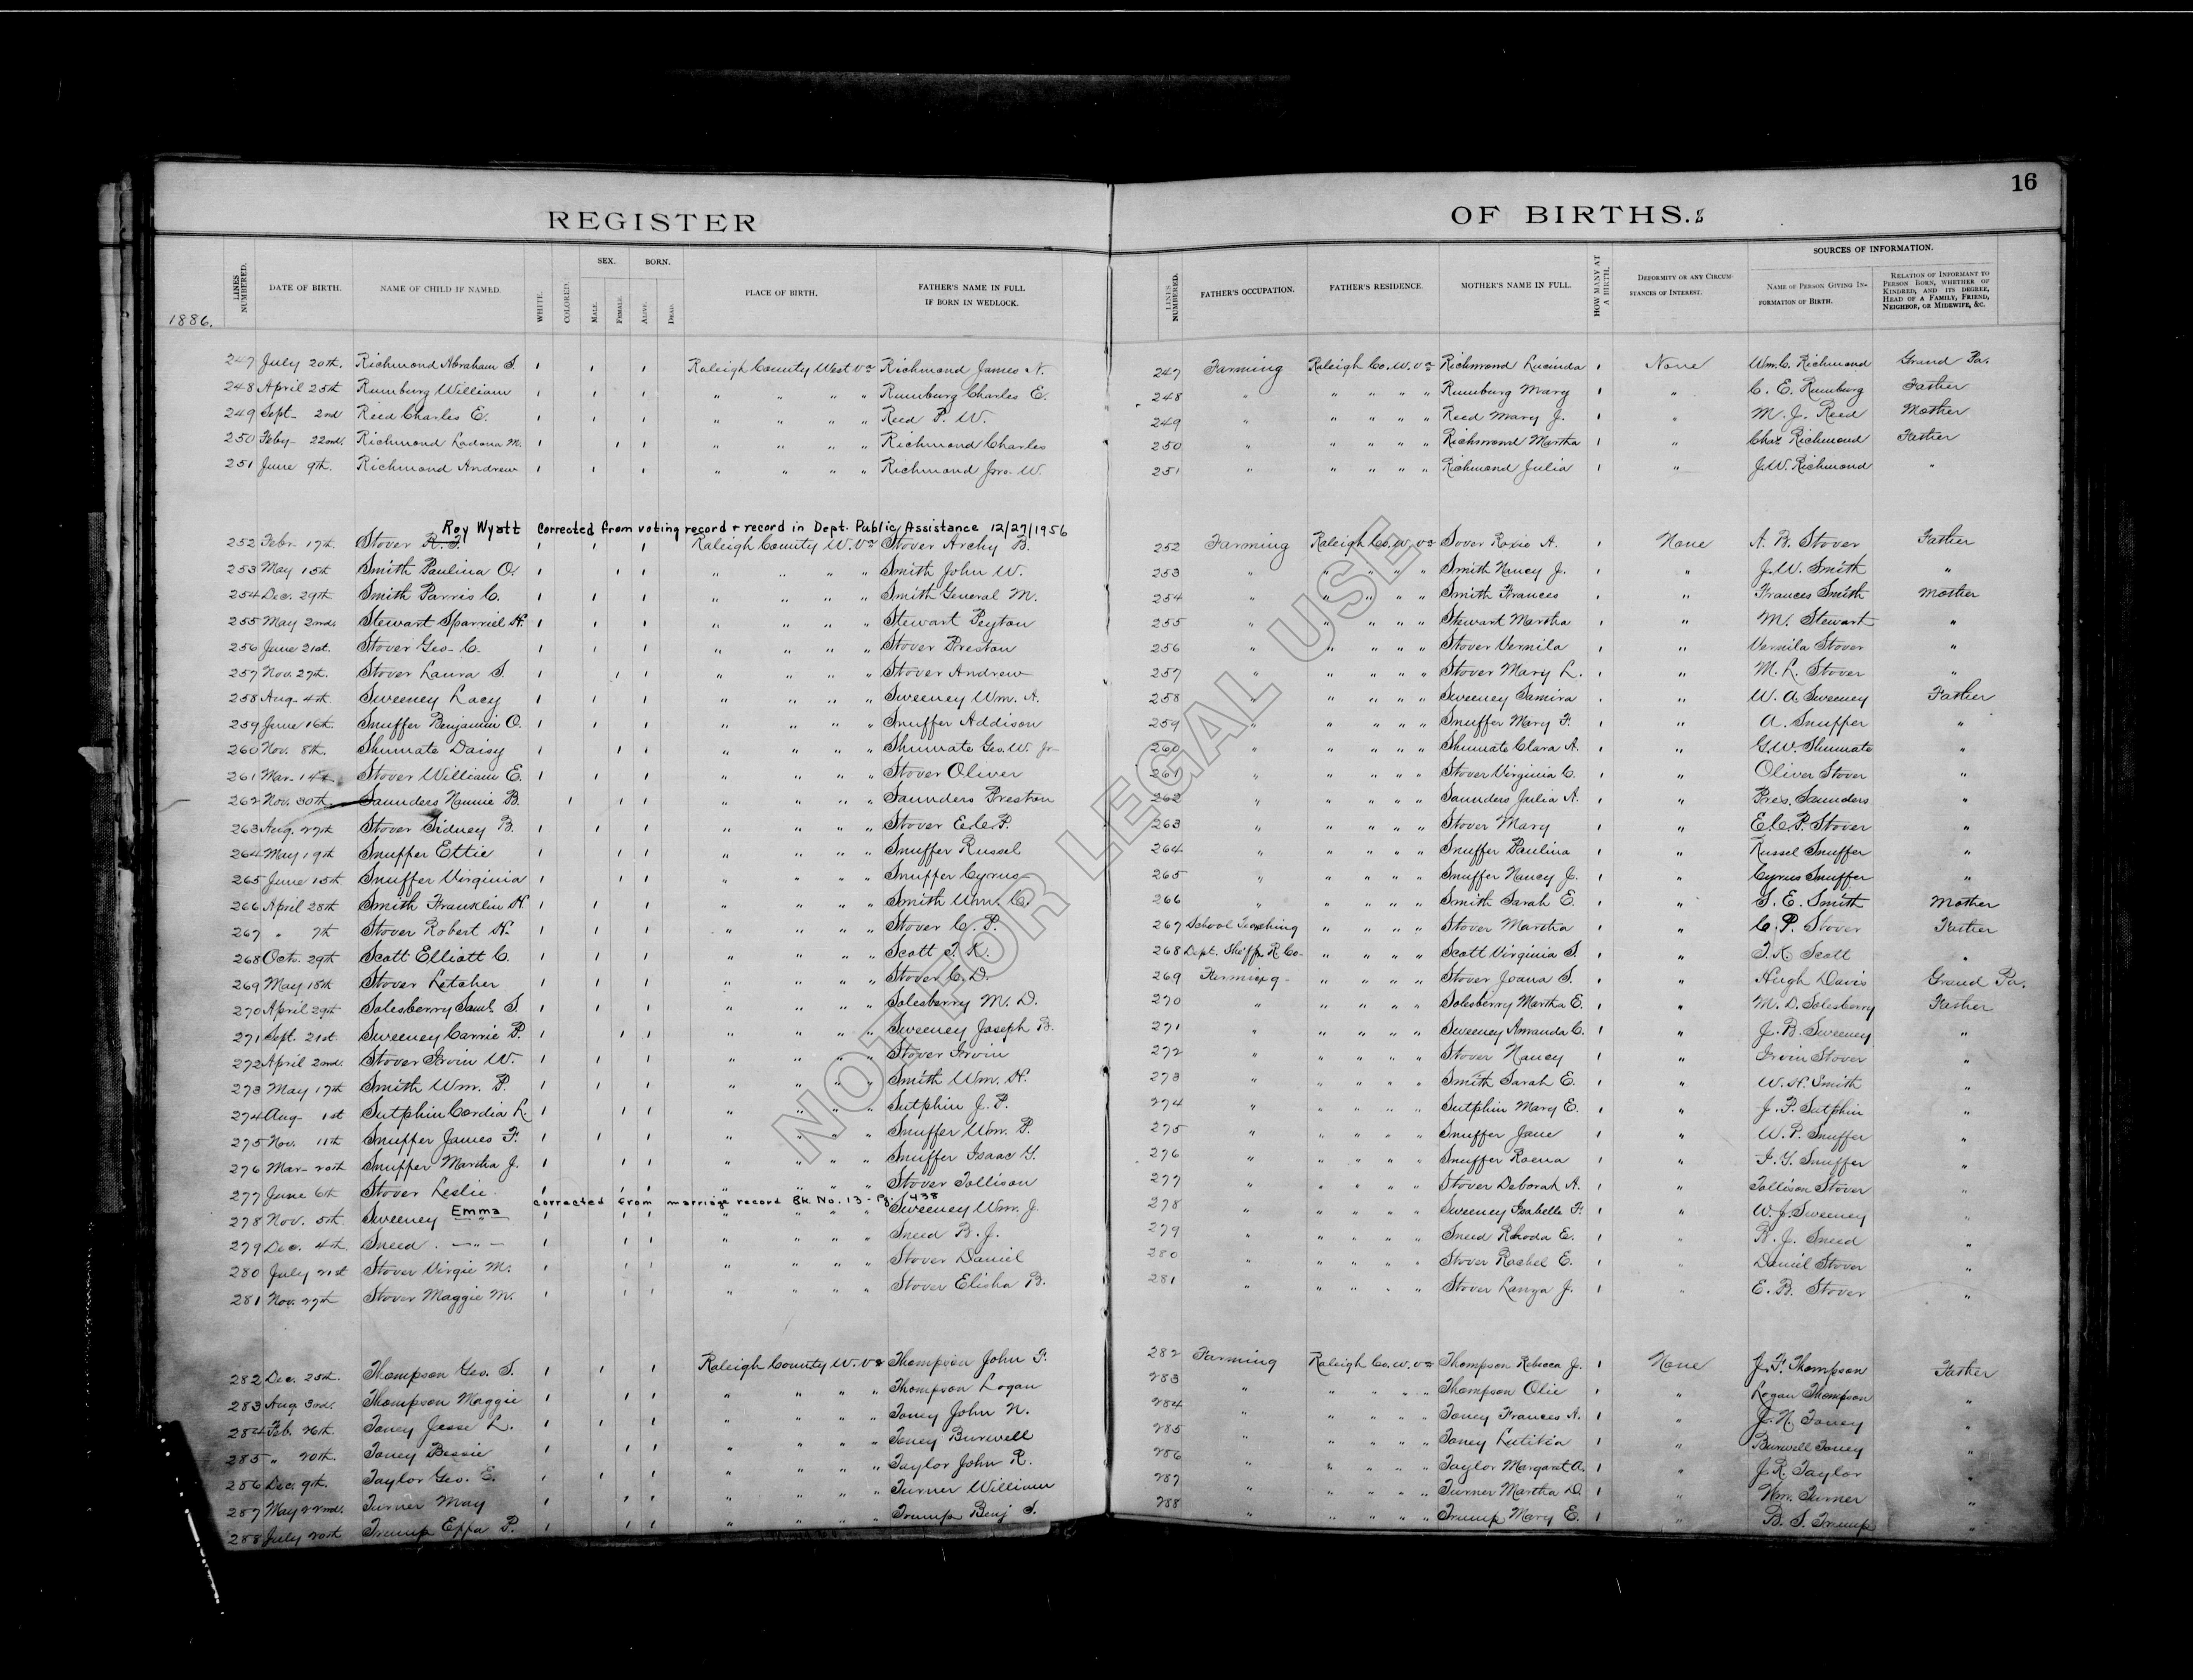 16
REGISTER OF BIRTHS.
LINES NUMBERED. DATE OF BIRTH. NAME OF CHILD IF NAMED. WHITE. COLORED. SEX. MALE. FEMALE. BORN. ALIVE. DEAD. PLACE OF BIRTH. FATHER'S NAME IN FULL IF BORN IN WEDLOCK. LINES NUMBERED. FATHER'S OCCUPATION. FATHER'S RESIDENCE. MOTHER'S NAME IN FULL. HOW MANY AT A BIRTH. DEFORMITY OR ANY CIRCUMSTANCES OF INTEREST. SOURCES OF INFORMATION. NAME OF PERSON GIVING INFORMATION OF BIRTH. RELATION OF INFORMANT TO PERSON BORN, WHETHER OF KINDRED, AND ITS DEGREE, HEAD OF A FAMILY, FRIEND, NEIGHBOR, OR MIDWIFE, &C.
1886.
247 July 20th. Richmond Abraham S. 1 1 1 Raleigh County West Va Richmond James N. 247 Farming Raleigh Co. W. Va Richmond Lucinda 1 None Wm. C. Richmond Grand Pa.
248 April 25th Rumburg William 1 1 1 " " " " Rumburg Charles E. 248 " " " " " Rumburg Mary 1 " C. E. Rumburg Father
249 Sept- 2nd Reed Charles E. 1 1 1 " " " " Reed P. W. 249 " " " " " Reed Mary J. 1 " M. J. Reed Mother
250 Feby- 22nd. Richmond Ladona M. 1 1 1 " " " " Richmond Charles 250 " " " " " Richmond Martha 1 " Chas Richmond Father
251 June 9th. Richmond Andrew 1 1 1 " " " " Richmond Jno. W. 251 " " " " " Richmond Julia 1 " J. W. Richmond "
Roy Wyatt Corrected from voting record & record in Dept. Public Assistance 12/27/1956
252 Febr. 17th. Stover R. T. 1 1 1 Raleigh County W. Va Stover Archy B. 252 Farming Raleigh Co. W. Va Sover Roxie A. 1 None A. B. Stover Father
253 May 15th Smith Paulina O. 1 1 1 " " " " Smith John W. 253 " " " " " Smith Nancy J. 1 " J. W. Smith "
254 Dec. 29th. Smith Parris C. 1 1 1 " " " " Smith General M. 254 " " " " " Smith Frances 1 " Frances Smith Mother
255 May 2nd. Stewart Sparriel H. 1 1 1 " " " " Stewart Peyton 255 " " " " " Stewart Martha 1 " M. Stewart "
256 June 21st. Stover Geo. C. 1 1 1 " " " " Stover Preston 256 " " " " " Stover Vernila 1 " Vernila Stover "
257 Nov. 27th. Stover Laura S. 1 1 1 " " " " Stover Andrew 257 " " " " " Stover Mary L. 1 " M. L. Stover "
258 Aug- 4th Sweeney Lacy 1 1 1 " " " " Sweeney Wm. A. 258 " " " " " Sweeney Samira 1 " W. A. Sweeney Father
259 June 16th. Snuffer Benjamin O. 1 1 1 " " " " Snuffer Addison 259 " " " " " Snuffer Mary F. 1 " A. Snuffer "
260 Nov. 8th. Shumate Daisy 1 1 1 " " " " Shumate Geo. W. Jr- 260 " " " " " Shumate Clara A. 1 " G. W. Shumate "
261 Mar- 14th Stover William E. 1 1 1 " " " " Stover Oliver 261 " " " " " Stover Virginia C. 1 " Oliver Stover "
262 Nov. 30th Saunders Nannie B. 1 1 1 " " " " Saunders Preston 262 " " " " " Saunders Julia A. 1 " Pres. Saunders "
263 Aug. 27th Stover Sidney B. 1 1 1 " " " " Stover E. C. P. 263 " " " " " Stover Mary 1 " E. C. P. Stover "
264 May 19th Snuffer Ettie 1 1 1 " " " " Snuffer Russel 264 " " " " " Snuffer Paulina 1 " Russel Snuffer "
265 June 15th Snuffer Virginia 1 1 1 " " " " Snuffer Cyrus 265 " " " " " Snuffer Nancy J. 1 " Cyrus Snuffer "
266 April 28th Smith Franklin H. 1 1 1 " " " " Smith Wm. C. 266 " " " " " Smith Sarah E. 1 " S. E. Smith Mother
267 " 7th Stover Robert H. 1 1 1 " " " " Stover C. P. 267 School Teaching " " " " Stover Martha 1 " C. P. Stover Father
268 Oct. 29th Scott Elliott C. 1 1 1 " " " " Scott T. K. 268 Dept. Sheff R. Co- " " " " Scott Virginia S. 1 " T. K. Scott "
269 May 18th Stover Letcher 1 1 1 " " " " Stover C. D. 269 Farming- " " " " Stover Joana S. 1 " Hugh Davis Grand Pa.
270 April 29th Solesberry Saml. S. 1 1 1 " " " " Solesberry M. D. 270 " " " " " Solesberry Martha E. 1 " M. D. Solesberry Father
271 Sept. 21st Sweeney Carrie P. 1 1 1 " " " " Sweeney Joseph B. 271 " " " " " Sweeney Amanda C. 1 " J. B. Sweeney "
272 April 22nd. Stover Irvin W. 1 1 1 " " " " Stover Irvin 272 " " " " " Stover Nancy 1 " Irvin Stover "
273 May 17th Smith Wm. P. 1 1 1 " " " " Smith Wm. H. 273 " " " " " Smith Sarah E. 1 " W. H. Smith "
274 Aug- 1st Sutphin Cordia L. 1 1 1 " " " " Sutphin J. P. 274 " " " " " Sutphin Mary E. 1 " J. P. Sutphin "
275 Nov. 11th Snuffer James F. 1 1 1 " " " " Snuffer Wm. P. 275 " " " " " Snuffer Jane 1 " W. P. Snuffer "
276 Mar- 20th Snuffer Martha J. 1 1 1 " " " " Snuffer Isaac Y. 276 " " " " " Snuffer Roena 1 " I. Y. Snuffer "
277 June 6th Stover Leslie. 1 1 1 " " " " Stover Tollison 277 " " " " " Stover Deborah A. 1 " Tollison Stover "
corrected from marriage record Bk. No. 13 - Pg. 438
278 Nov. 5th. Sweeney Emma 1 1 1 " " " " Sweeney Wm. J. 278 " " " " " Sweeney Isabelle F. 1 " W. J. Sweeney "
279 Dec. 4th. Sneed . — " — 1 1 1 " " " " Sneed B. J. 279 " " " " " Sneed Rhoda E. 1 " B. J. Sneed "
280 July 21st Stover Virgie M. 1 1 1 " " " " Stover Daniel 280 " " " " " Stover Rachel E. 1 " Daniel Stover "
281 Nov. 27th Stover Maggie M. 1 1 1 " " " " Stover Elisha B. 281 " " " " " Stover Lanza J. 1 " E. B. Stover "
282 Dec. 25th. Thompson Geo. S. 1 1 1 Raleigh County W. Va Thompson John F. 282 Farming Raleigh Co. W. Va Thompson Rebecca J. 1 None J. F. Thompson Father
283 Aug. 3rd. Thompson Maggie 1 1 1 " " " " Thompson Logan 283 " " " " " Thompson Olie 1 " Logan Thompson "
284 Feb. 26th. Toney Jesse L. 1 1 1 " " " " Toney John N. 284 " " " " " Toney Frances A. 1 " J. N. Toney "
285 " 20th. Toney Bessie 1 1 1 " " " " Toney Burwell 285 " " " " " Toney Lutitia 1 " Burwell Toney "
286 Dec. 9th. Taylor Geo. E. 1 1 1 " " " " Taylor John R. 286 " " " " " Taylor Margaret A. 1 " J. R. Taylor "
287 May 22nd. Turner May 1 1 1 " " " " Turner William 287 " " " " " Turner Martha D. 1 " Wm. Turner "
288 July 20th Trump Effa P. 1 1 1 " " " " Trump Benj S. 288 " " " " " Trump Mary E. 1 " B. S. Trump "
NOT FOR LEGAL USE